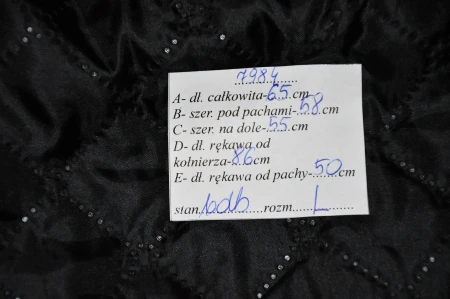 7984
A- dł. całkowita-65.cm
B- szer. pod pachami-58.cm
C- szer. na dole-55.cm
D- dł. rękawa od
kołnierza-86cm
E- dł. rękawa od pachy-50cm
stan bdb rozm. L